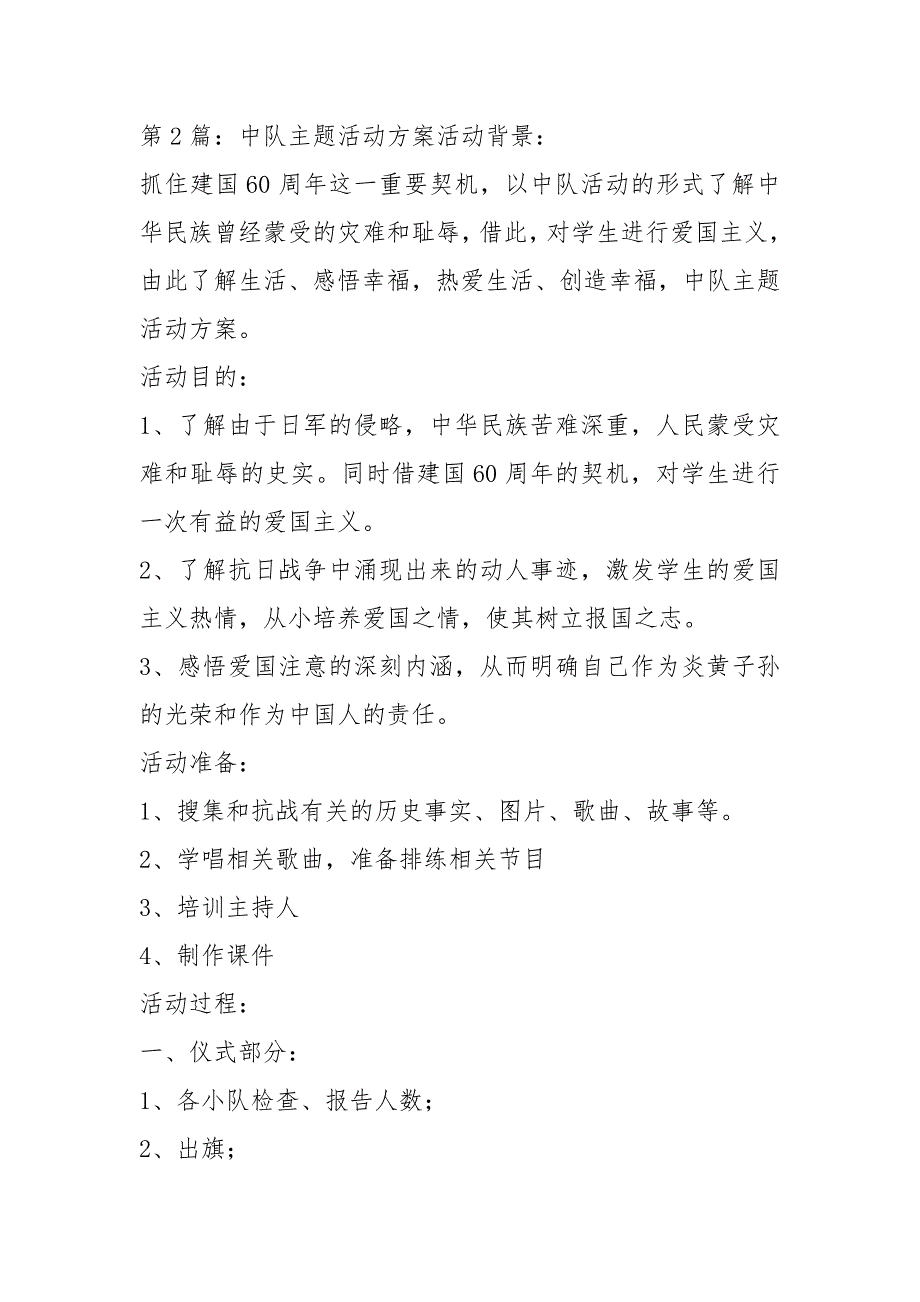 第2篇：中队主题活动方案活动背景：
抓住建国60周年这一重要契机，以中队活动的形式了解中
华民族曾经蒙受的灾难和耻辱，借此，对学生进行爱国主义，
由此了解生活、感悟幸福，热爱生活、创造幸福，中队主题
活动方案。
活动目的：
1、了解由于日军的侵略，中华民族苦难深重，人民蒙受灾
难和耻辱的史实。同时借建国60周年的契机，对学生进行
一次有益的爱国主义。
2、了解抗日战争中涌现出来的动人事迹，激发学生的爱国
主义热情，从小培养爱国之情，使其树立报国之志。
3、感悟爱国注意的深刻内涵，从而明确自己作为炎黄子孙
的光荣和作为中国人的责任。
活动准备：
1、搜集和抗战有关的历史事实、图片、歌曲、故事等。
2、学唱相关歌曲，准备排练相关节目
3、培训主持人
4、制作课件
活动过程：
一、仪式部分：
1、各小队检查、报告人数；
2、出旗；